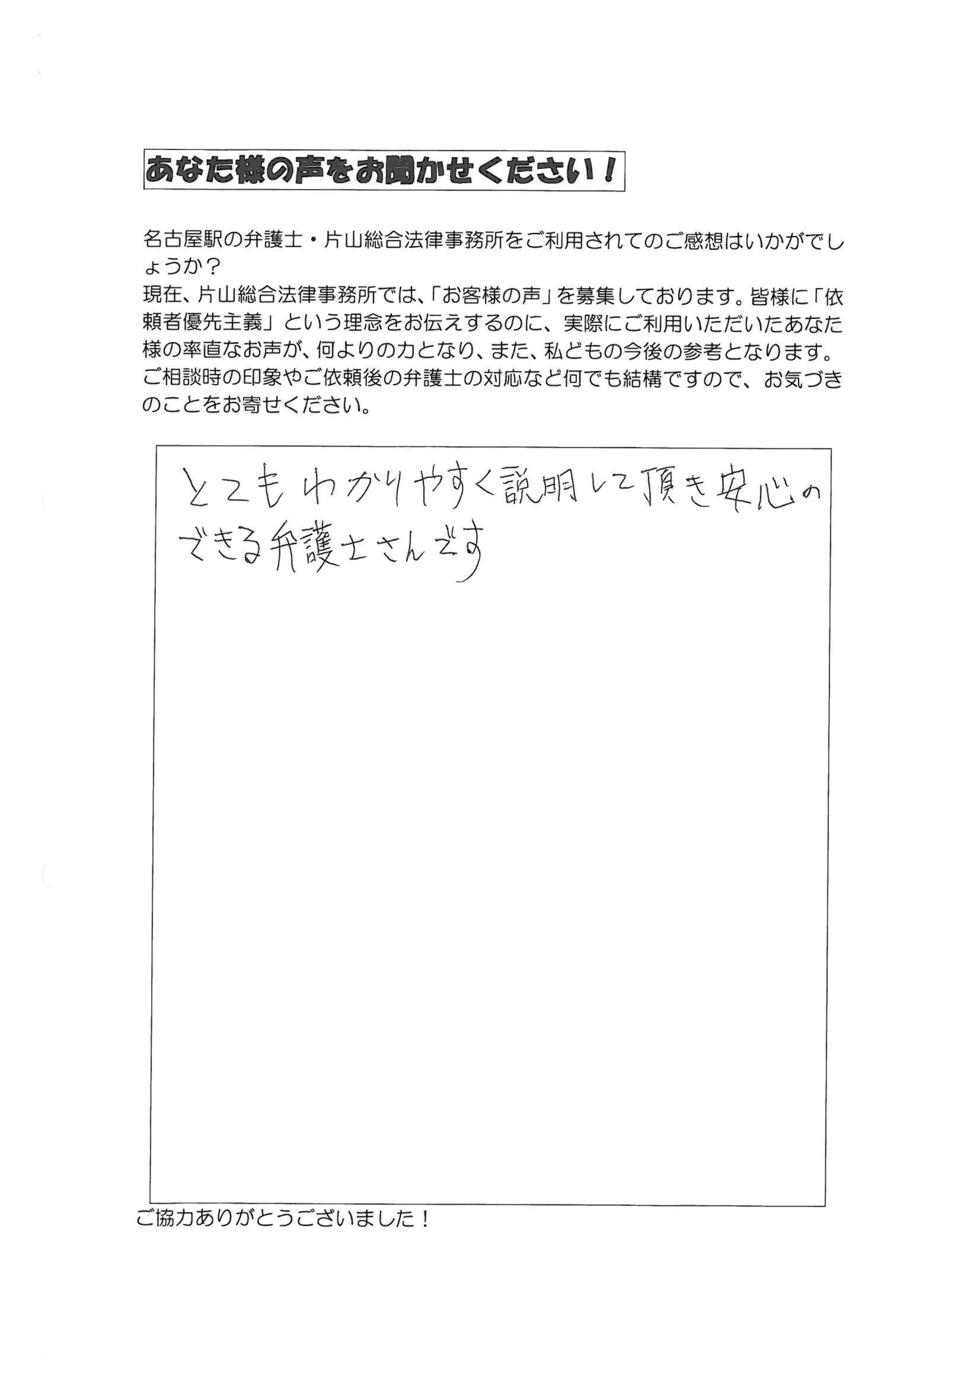 あなた様の声をお聞かせください！
名古屋駅の弁護士・片山総合法律事務所をご利用されてのご感想はいかがでし
ょうか？
現在、片山総合法律事務所では、「お客様の声」を募集しております。皆様に「依
頼者優先主義」という理念をお伝えするのに、実際にご利用いただいたあなた
様の率直なお声が、何よりの力となり、また、私どもの今後の参考となります。
ご相談時の印象やご依頼後の弁護士の対応など何でも結構ですので、お気づき
のことをお寄せください。
とてもわかりやすく説明して頂き安心の
できる弁護士さんです
ご協力ありがとうございました！